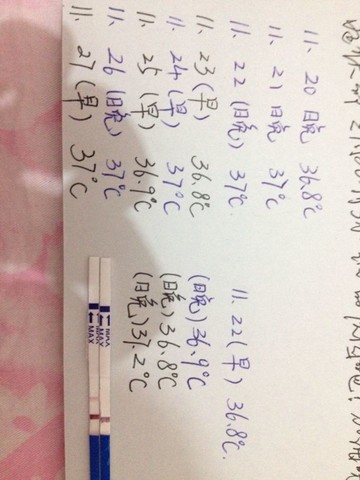 11. 20 晚 36.8℃
11. 21 晚 37℃
11. 22 (晚) 37℃. 11. 22 (早) 36.8℃.
11. 23 (早) 36.8℃ (晚) 36.9℃
11. 24 (早) 37℃ (晚) 36.8℃
11. 25 (早) 36.9℃ (晚) 37.2℃
11. 26 (晚) 37℃
11. 27 (早) 37℃
MAX
MAX